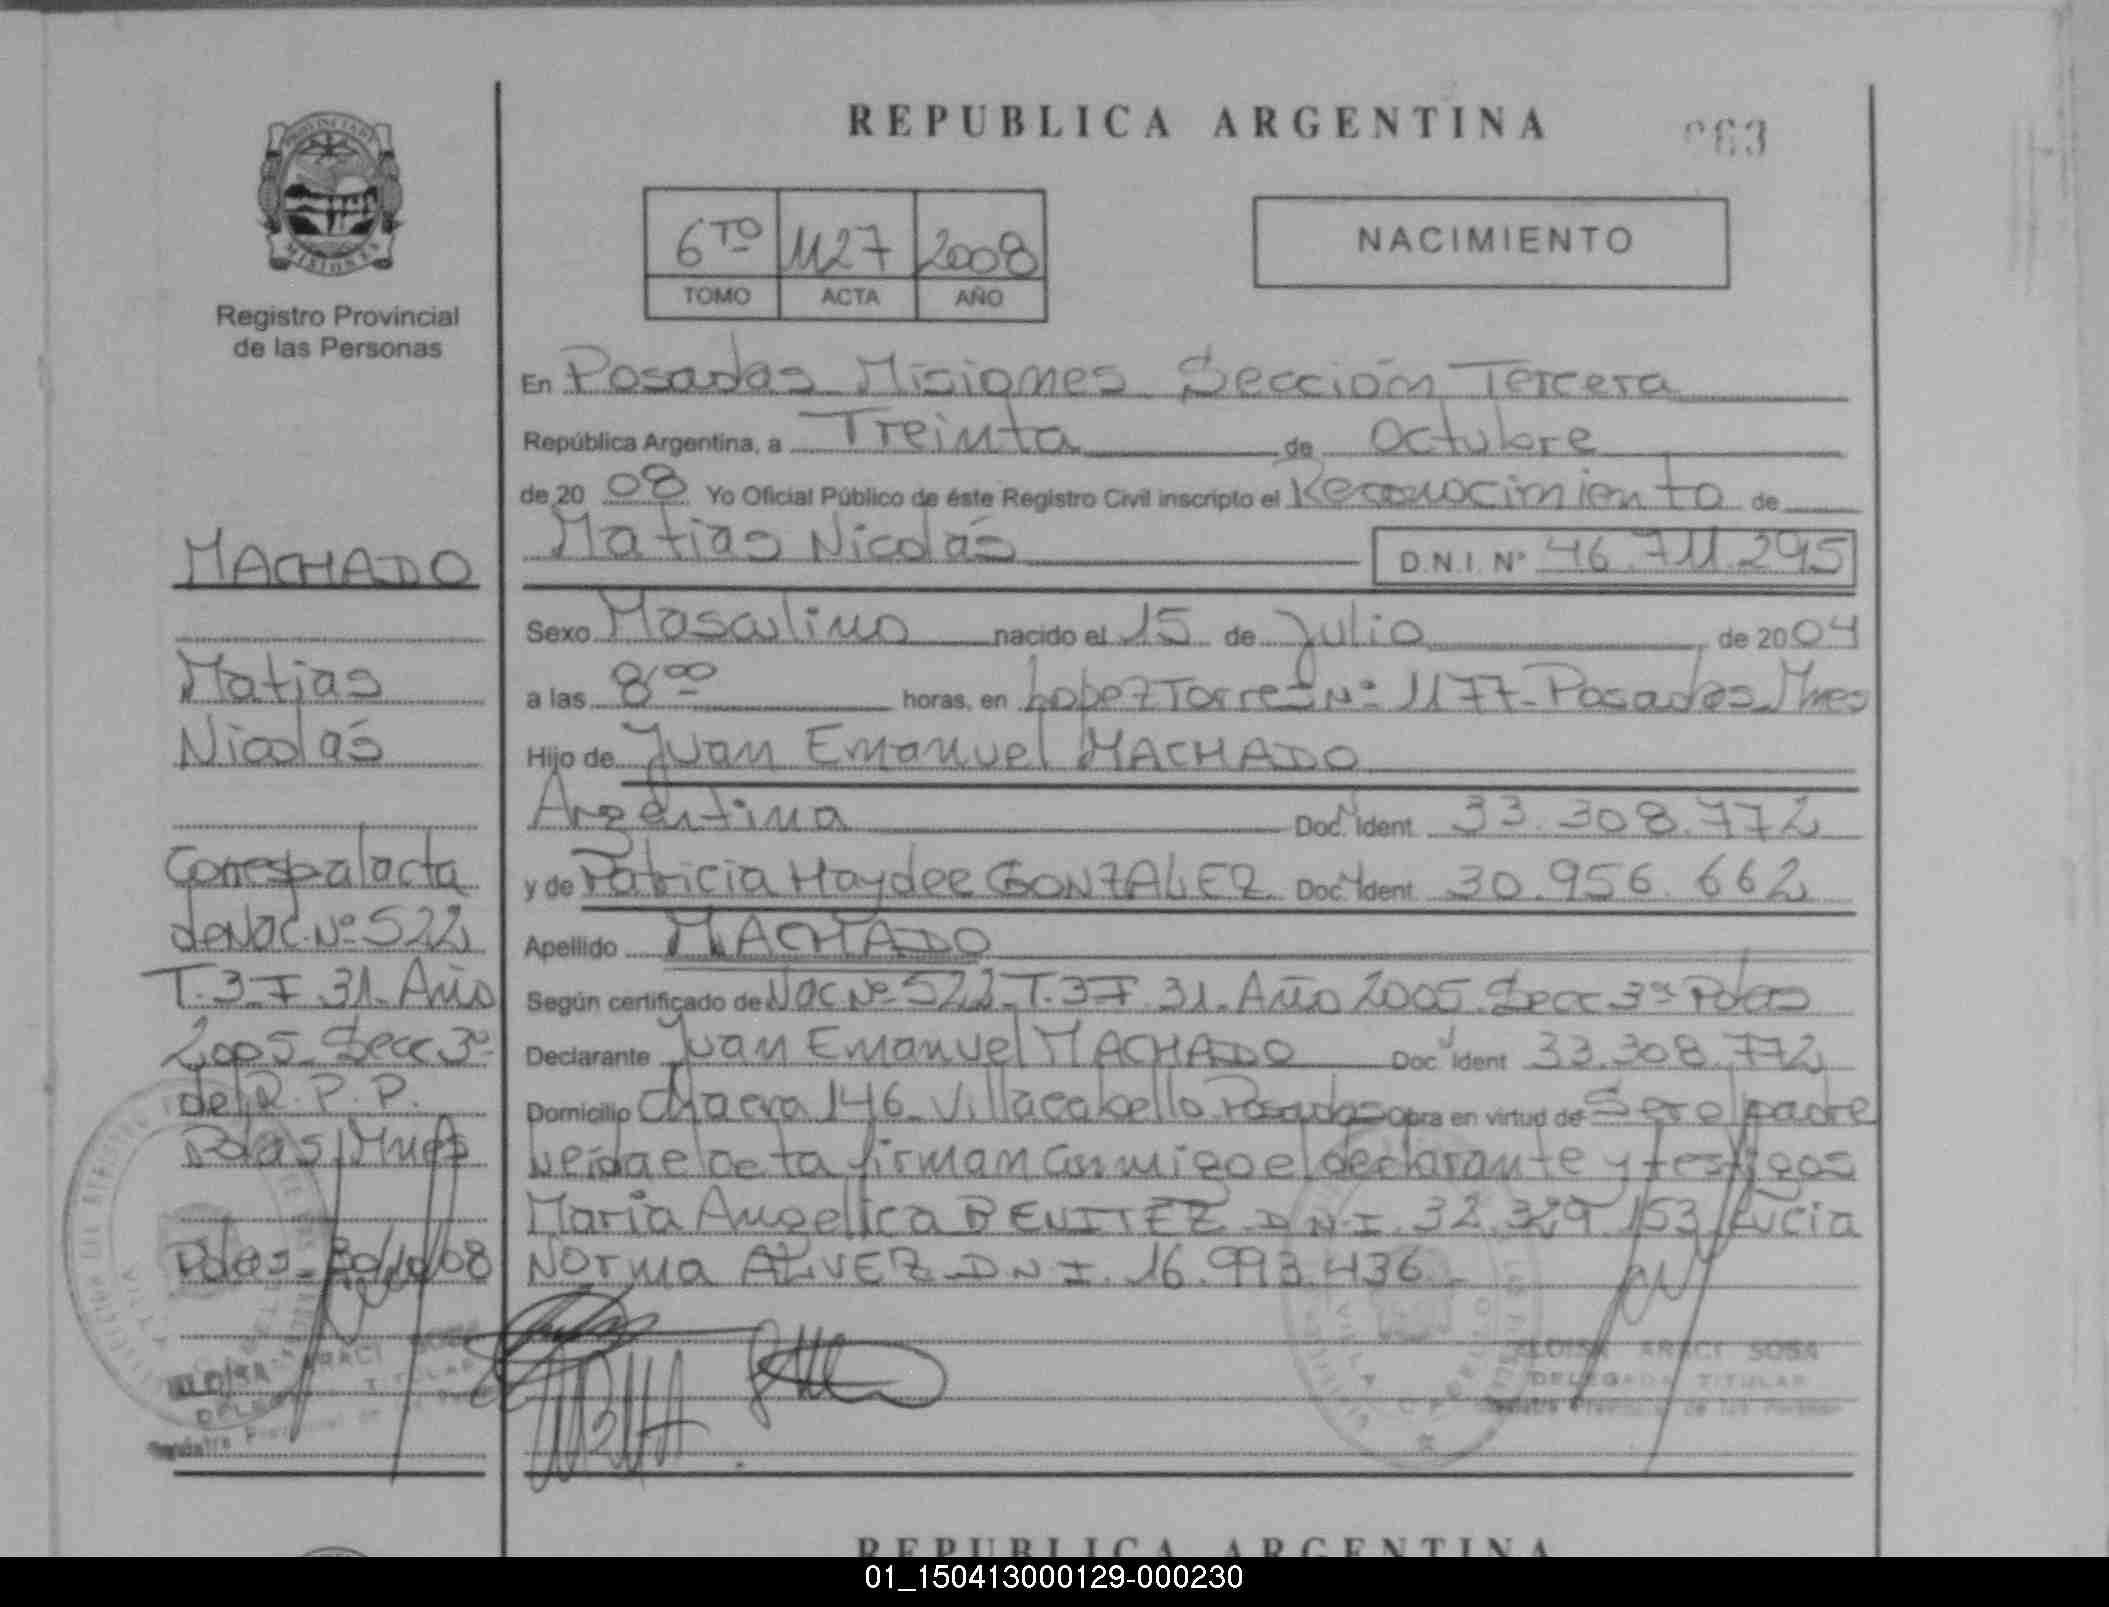 REPUBLICA ARGENTINA
063
6TO 1127 2008
TOMO ACTA AÑO
NACIMIENTO
Registro Provincial
de las Personas
En Posadas Misiones Sección Tercera
República Argentina, a Treinta de Octubre
de 2008 Yo Oficial Público de éste Registro Civil inscripto el Reconocimiento de
Matias Nicolás D.N.I. Nº 46.711.295
Sexo Masculino nacido el 15 de Julio de 2004
a las 8,00 horas, en Lopez Torres Nº 1177 - Posadas Mnes
Hijo de Juan Emanuel MACHADO
Argentina Doc. Ident. 33.308.772
y de Patricia Haydee GONZALEZ Doc. Ident. 30.956.662
Apellido MACHADO
Según certificado de Nac Nº 522 T. 3 F 31. Año 2005. Secc 3ª Pdas
Declarante Juan Emanuel MACHADO Doc Ident 33.308.772
Domicilio Chacra 146 Villa Cabello Posadas obra en virtud de Ser el padre
Leida el acta firman conmigo el declarante y testigos
Maria Angelica BENITEZ D.N.I. 32.329.153 Lucia
Norma ALVEZ D.N.I. 16.993.436
MACHADO
Matias
Nicolás
Corresp a l acta
de Nac. Nº 522
T. 3 F 31 Año
2005 Secc 3ª
del R. P. P.
Pdas Mnes
Pdas 30/10/08
ELOISA ARACI SOSA
DELEGADA TITULAR
Registro Provincial de las Personas
ELOISA ARACI SOSA
DELEGADA TITULAR
Registro Provincial de las Personas
REPUBLICA ARGENTINA
01_150413000129-000230